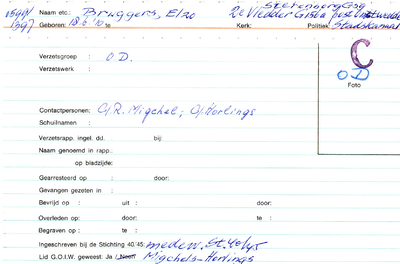 Naam etc.: Bruggers, Elzo
Geboren: 18.6.'10 te Kerk: Politiek: Stadskanaal
C
Verzetsgroep : O.D.
Verzetswerk :
OD
Foto
Contactpersonen: C/R. Migchel; C/Horlings
Schuilnamen :
Verzetsrapp. ingel. dd. bij:
Naam genoemd in rapp.:
op bladzijde:
Gearresteerd op : door:
Gevangen gezeten in :
Bevrijd op : uit : door:
Overleden op: door: te :
Begraven op : te :
Ingeschreven bij de Stichting 40/45: medew. St. 40/45
Lid G.O.I.W. geweest: Ja / Neen Migchels-Horlings